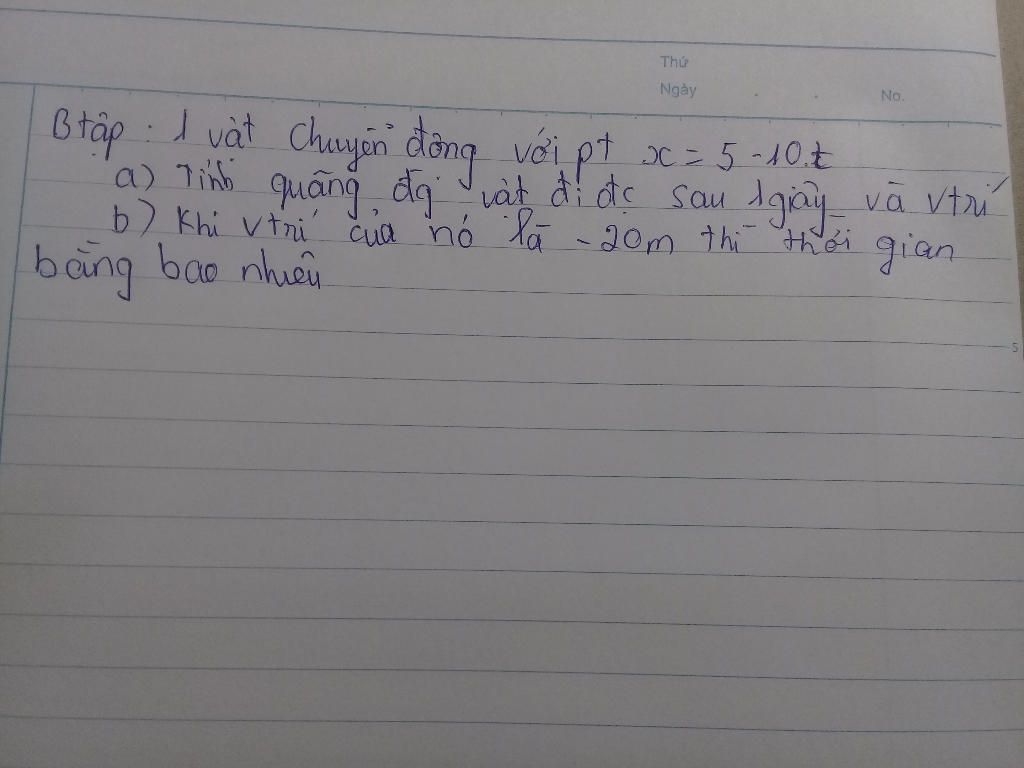 Thứ
Ngày . . No.
Btập : 1 vật chuyển động với pt x = 5 - 10.t
a) Tính quãng đg vật đi đc sau 1 giây và vtrí
b) Khi vtrí của nó là - 20m thì thời gian
bằng bao nhiêu
5